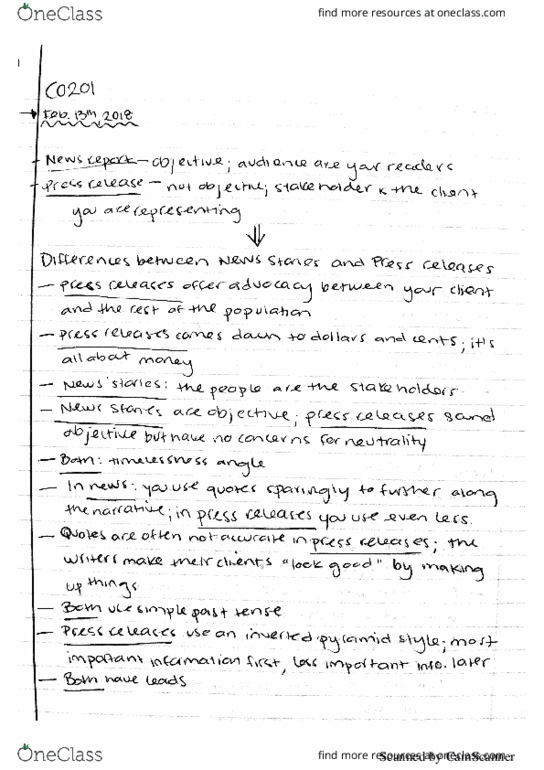 OneClass
find more resources at oneclass.com
1
CO201
Feb. 13th, 2018
- News report - objective; audience are your readers
- Press release - not objective; stakeholder & the client
you are representing
Differences between News Stories and Press releases
- press releases offer advocacy between your client
and the rest of the population
- press releases comes down to dollars and cents; it's
all about money
- News stories: the people are the stakeholders.
- News stories are objective; press releases sand
objective but have no concerns for neutrality
- Both: timelessness angle
- In news: you use quotes sparingly to further along
the narrative; in press releases you use even less.
- Quotes are often not accurate in press releases; the
writers make their clients "look good" by making
up things
- Both use simple past tense
- Press releases use an inverted pyramid style; most
important information first, less important info. later
- Both have leads
OneClass
find more resources at oneclass.com
Scanned by CamScanner